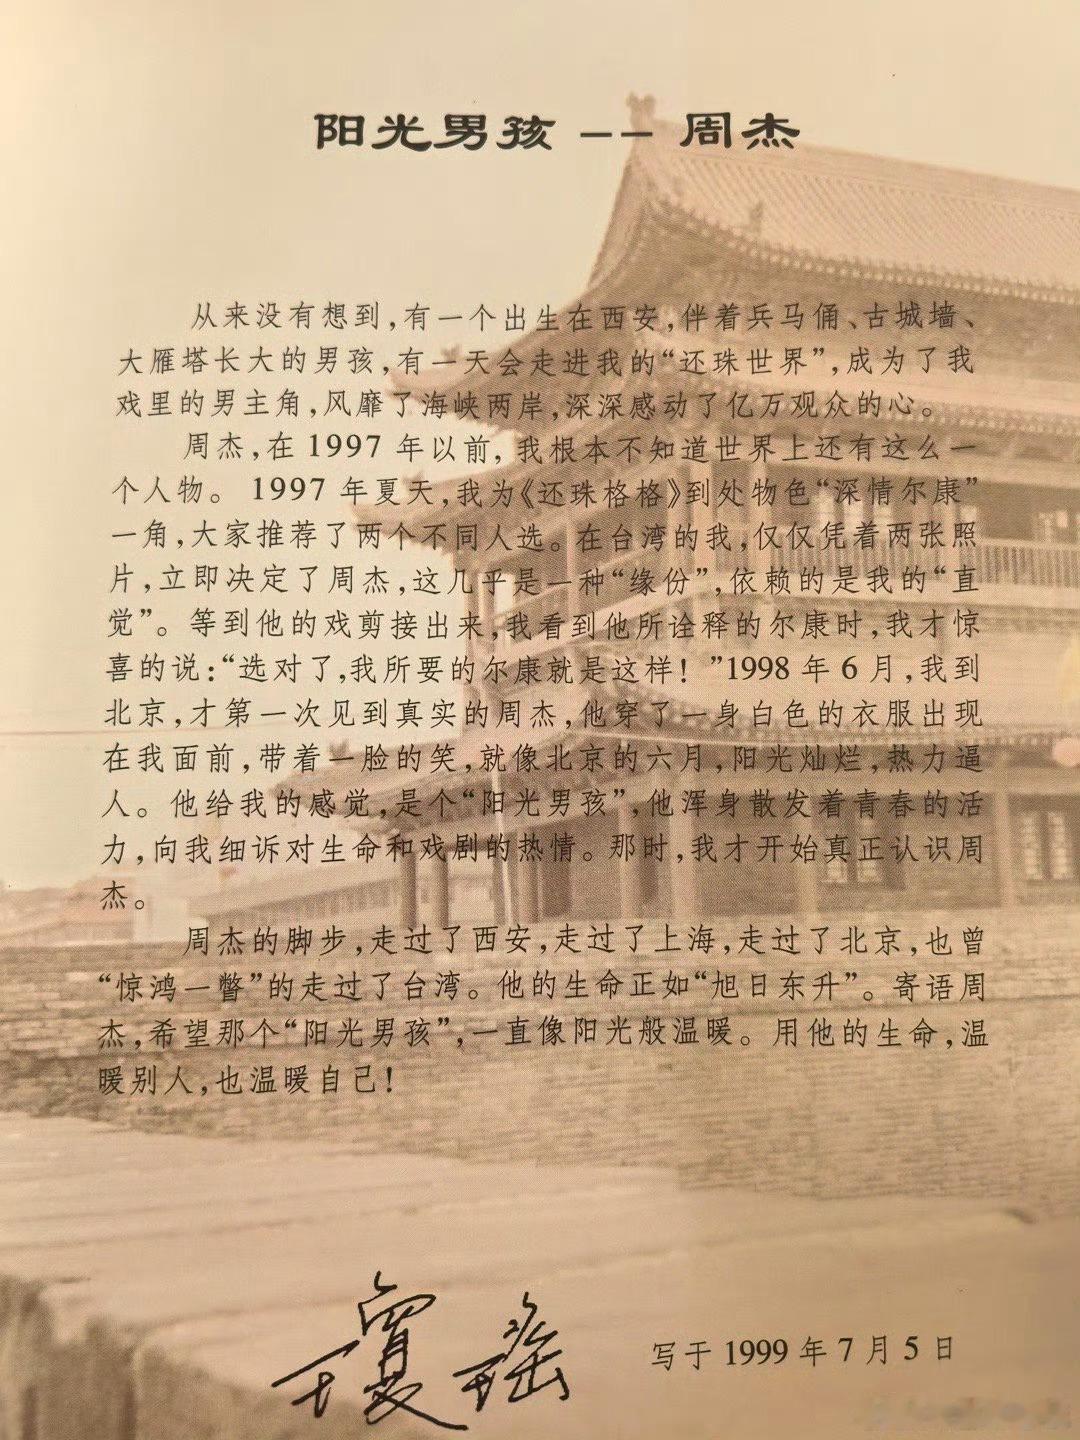 阳光男孩 -- 周杰
从来没有想到,有一个出生在西安,伴着兵马俑、古城墙、
大雁塔长大的男孩,有一天会走进我的“还珠世界”,成为了我
戏里的男主角,风靡了海峡两岸,深深感动了亿万观众的心。
周杰,在 1997 年以前,我根本不知道世界上还有这么一
个人物。 1997 年夏天,我为《还珠格格》到处物色“深情尔康”
一角,大家推荐了两个不同人选。在台湾的我,仅仅凭着两张照
片,立即决定了周杰,这几乎是一种“缘份”,依赖的是我的“直
觉”。等到他的戏剪接出来,我看到他所诠释的尔康时,我才惊
喜的说:“选对了,我所要的尔康就是这样!”1998 年 6 月,我到
北京,才第一次见到真实的周杰,他穿了一身白色的衣服出现
在我面前,带着一脸的笑,就像北京的六月,阳光灿烂,热力逼
人。他给我的感觉,是个“阳光男孩”,他浑身散发着青春的活
力,向我细诉对生命和戏剧的热情。那时,我才开始真正认识周
杰。
周杰的脚步,走过了西安,走过了上海,走过了北京,也曾
“惊鸿一瞥”的走过了台湾。他的生命正如“旭日东升”。寄语周
杰,希望那个“阳光男孩”,一直像阳光般温暖。用他的生命,温
暖别人,也温暖自己!
琼瑶 写于 1999 年 7 月 5 日